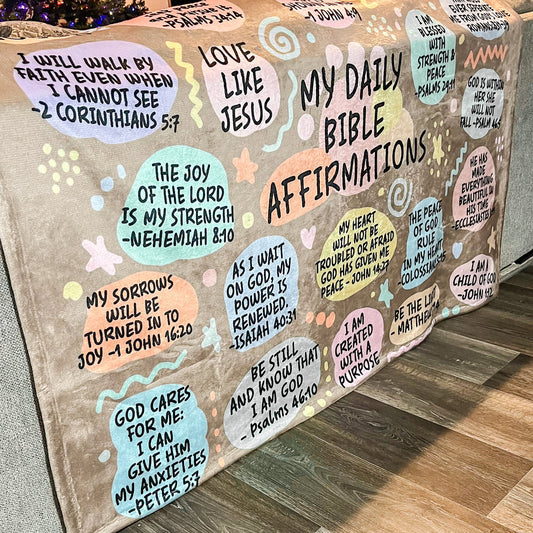 -PSALMS 34:14
-1 JOHN 4:9
EVER SEPARATE
ME FROM GOD'S LOVE
I WILL WALK BY
FAITH EVEN WHEN
I CANNOT SEE
-2 CORINTHIANS 5:7
LOVE
LIKE
JESUS
MY DAILY
BIBLE
AFFIRMATIONS
I AM
BLESSED
WITH
STRENGTH &
PEACE
-PSALMS 29:11
GOD IS WITHIN
HER SHE
WILL NOT
FALL -PSALM 46:5
THE JOY
OF THE LORD
IS MY STRENGTH
-NEHEMIAH 8:10
HE HAS
MADE
EVERYTHING
BEAUTIFUL IN
HIS TIME
-ECCLESIASTES
MY HEART
WILL NOT BE
TROUBLED OR AFRAID
GOD HAS GIVEN ME
PEACE - JOHN 14:27
THE PEACE
OF GOD
RULE
IN MY HEART
-COLOSSIANS
AS I WAIT
ON GOD, MY
POWER IS
RENEWED.
-ISAIAH 40:31
I AM A
CHILD OF GOD
-JOHN 1:12
MY SORROWS
WILL BE
TURNED IN TO
JOY -1 JOHN 16:20
BE THE
-MATTHEW
I AM
CREATED
WITH A
PURPOSE
BE STILL
AND KNOW THAT
I AM GOD
- Psalms 46:10
GOD CARES
FOR ME:
I CAN
GIVE HIM
MY ANXIETIES
-PETER 5:7